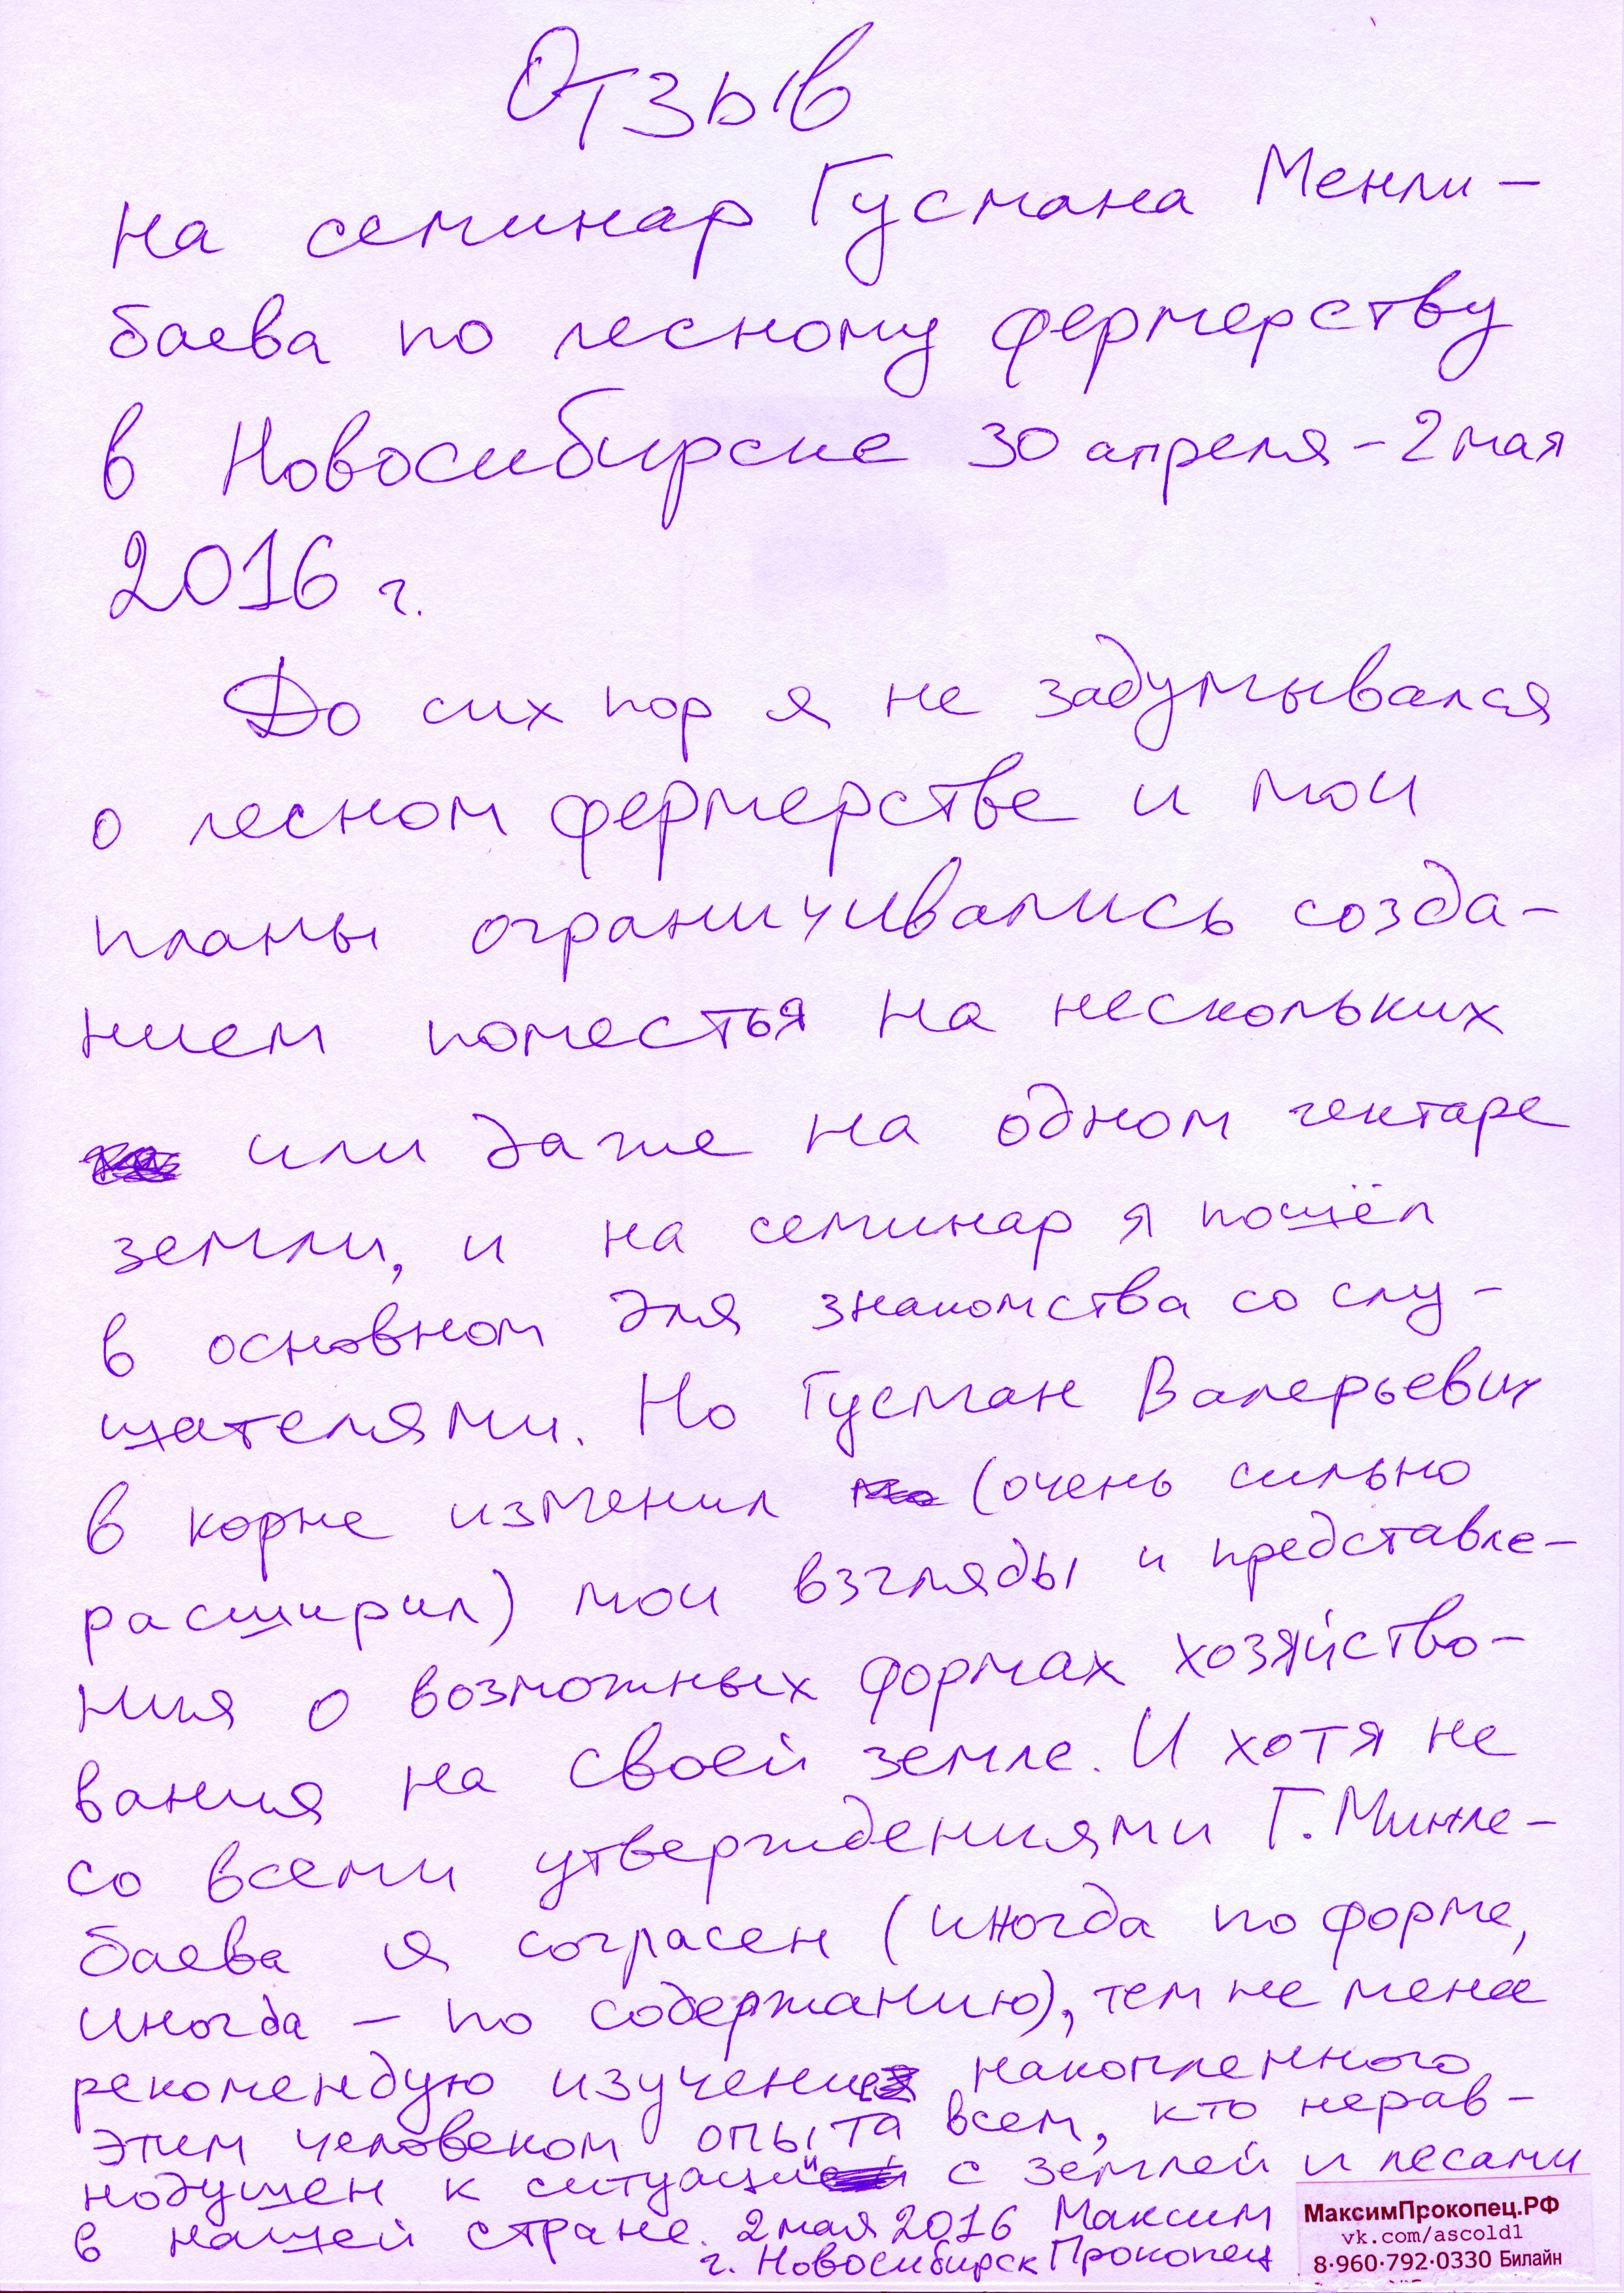 Отзыв
на семинар Гусмана Менли-
баева по лесному фермерству
в Новосибирске 30 апреля - 2 мая
2016 г.
До сих пор я не задумывался
о лесном фермерстве и мои
планы ограничивались созда-
нием поместья на нескольких
или даже на одном гектаре
земли, и на семинар я пошёл
в основном для знакомства со слу-
шателями. Но Гусман Валерьевич
в корне изменил (очень сильно
расширил) мои взгляды и представле-
ния о возможных формах хозяйство-
вания на своей земле. И хотя не
со всеми утверждениями Г. Минле-
баева я согласен (иногда по форме,
иногда – по содержанию), тем не менее
рекомендую изучение накопленного
этим человеком опыта всем, кто нерав-
нодушен к ситуации с землей и лесами
в нашей стране. 2 мая 2016 Максим
г. Новосибирск Прокопец
МаксимПрокопец.РФ
vk.com/ascold1
8·960·792·0330 Билайн